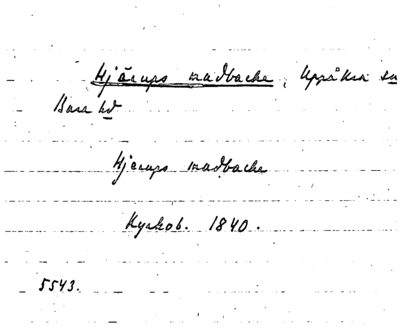 Hjärups madbacke, Uppåkra sn
Bara hd
Hjerups madbacke
Kyrkob. 1840.
5543.